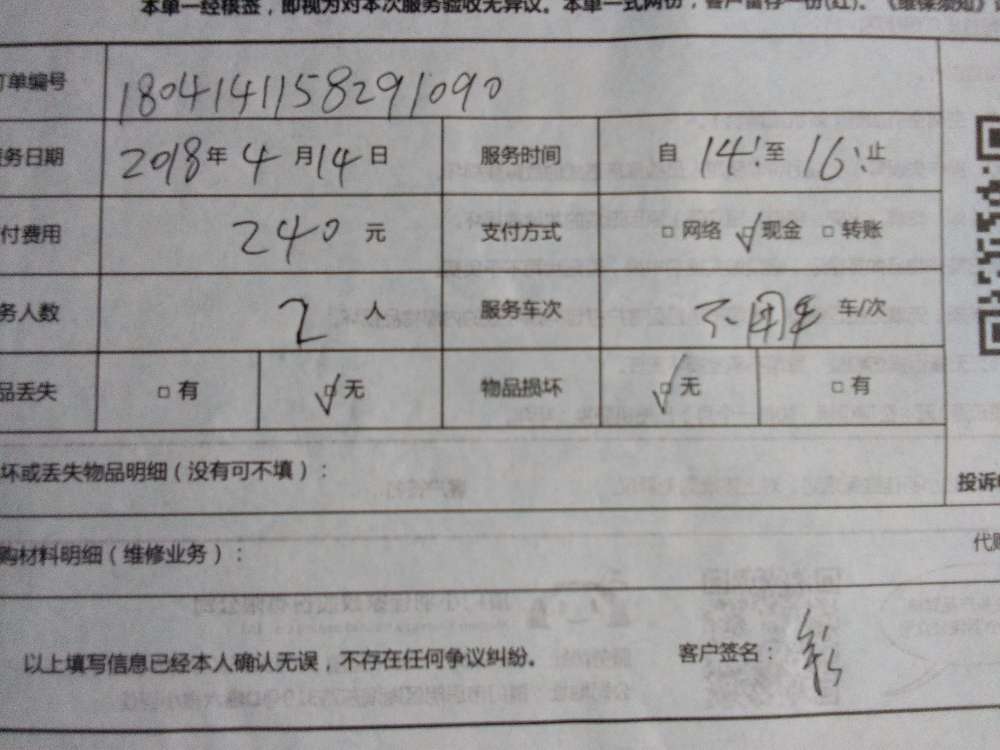 本单一经核签，即视为对本次服务验收无异议。本单一式两份，客户留存一份(红)。《维保须知》
订单编号 1804141158291090
服务日期 2018年 4月14日 服务时间 自 14:至 16:止
付费用 240 元 支付方式 □网络 ☑现金 □转账
务人数 2 人 服务车次 不用车 车/次
品丢失 □有 ☑无 物品损坏 ☑无 □有
坏或丢失物品明细（没有可不填）：
投诉
购材料明细（维修业务）：
代购
以上填写信息已经本人确认无误，不存在任何争议纠纷。 客户签名：